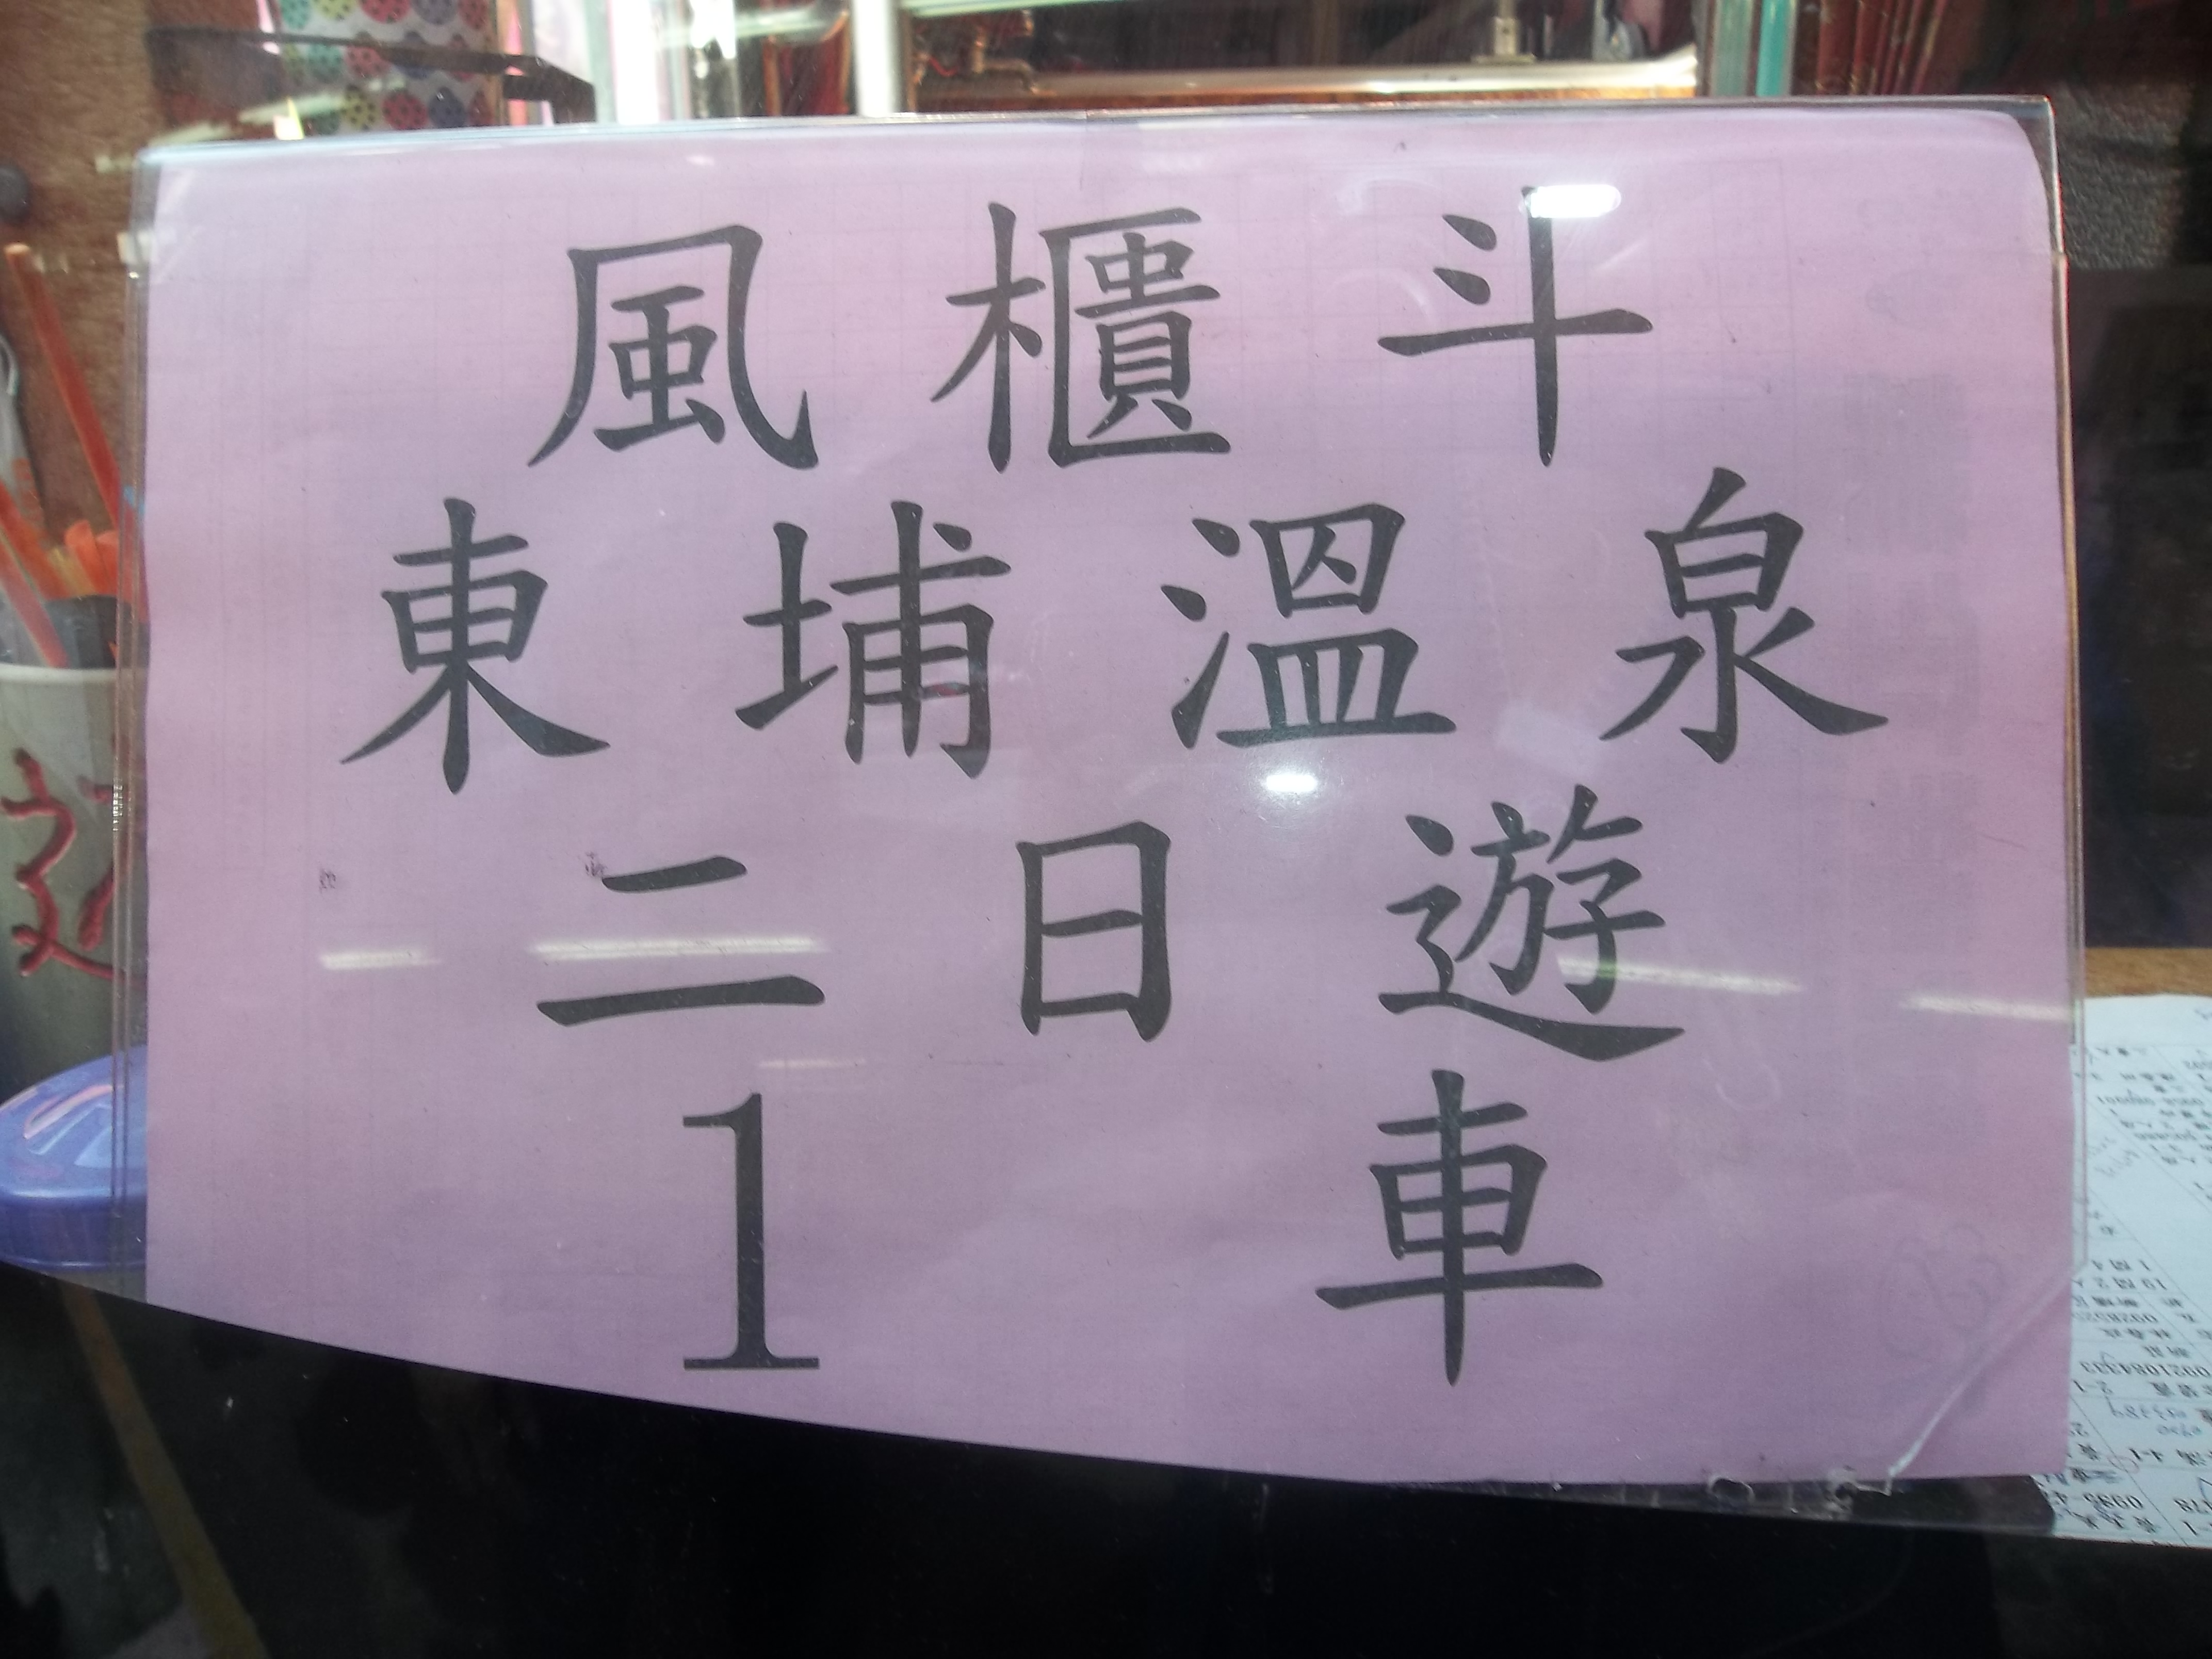 風櫃斗
東埔溫泉
二日遊
1 車